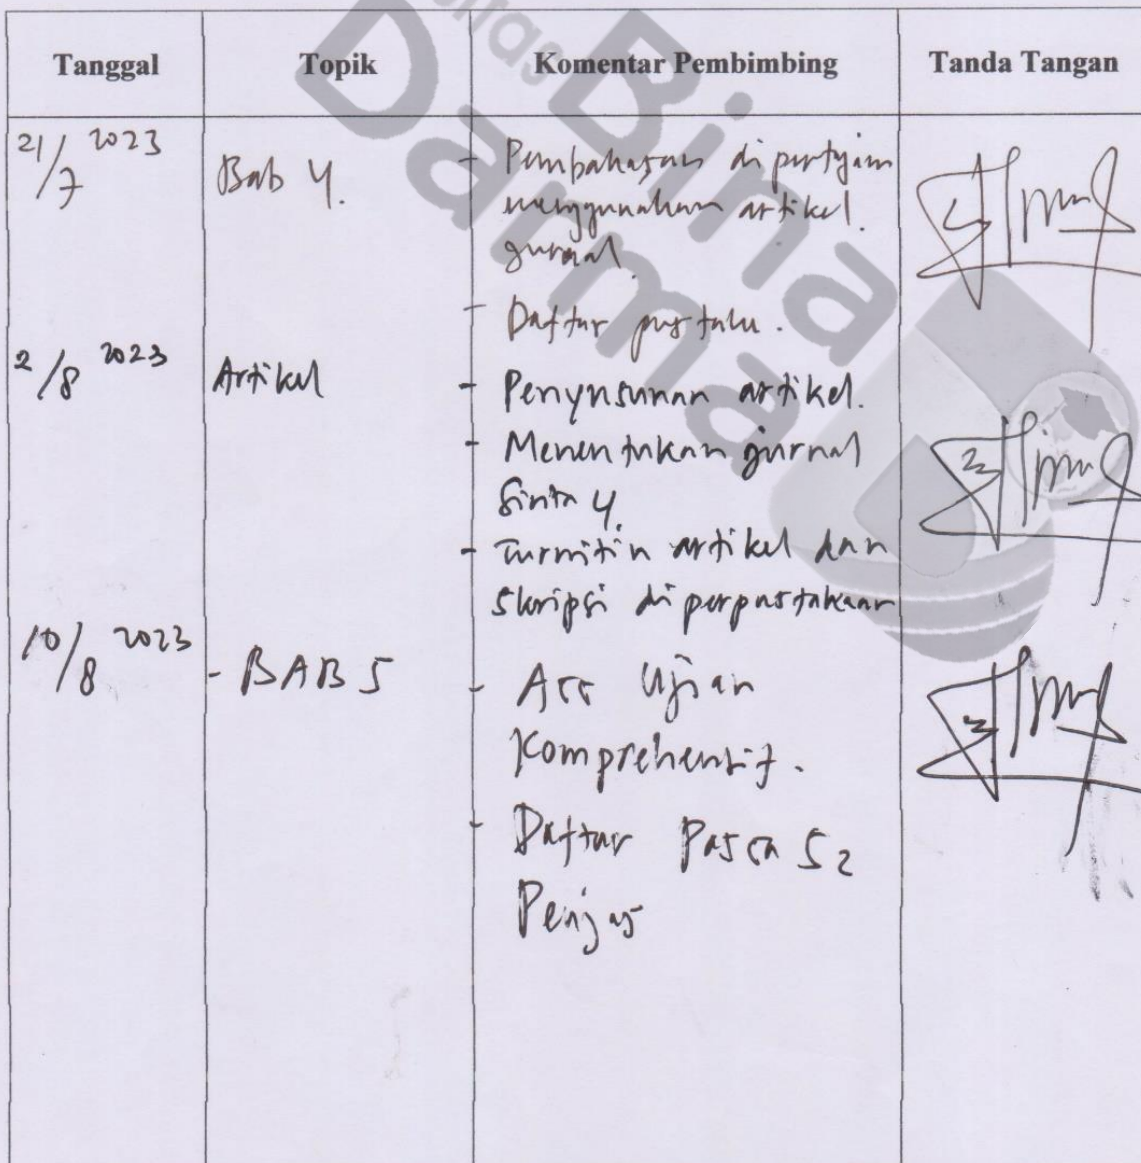 Tanggal Topik Komentar Pembimbing Tanda Tangan
Bina
Darma
21/7 2023 Bab 4. - Pembahasan dipertajam
menggunakan artikel
jurnal.
- Daftar pustaka.
2/8 2023 Artikel - Penyusunan artikel.
- Menentukan jurnal
Sinta 4.
- Turnitin artikel dan
skripsi di perpustakaan
10/8 2023 - BAB 5 - Acc Ujian
Komprehensif.
- Daftar Pasca S2
Penjas